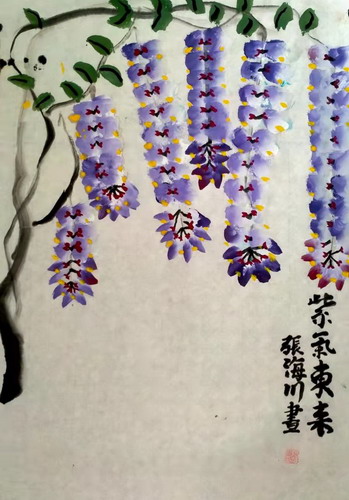 紫氣東来
張海川畫